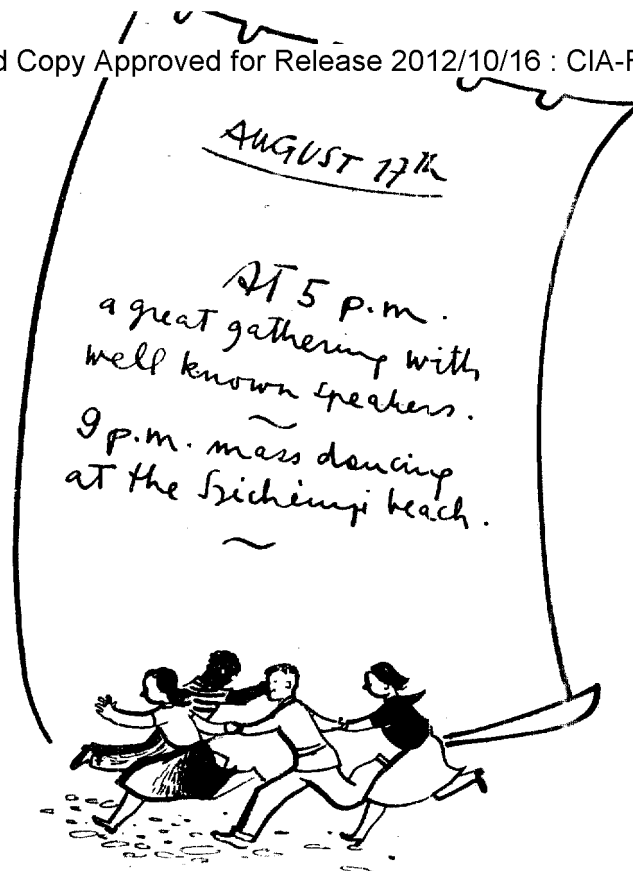 d Copy Approved for Release 2012/10/16 : CIA-R
AUGUST 17th
AT 5 p.m.
a great gathering with
well known speakers.
~
9 p.m. mass dancing
at the beach.
~